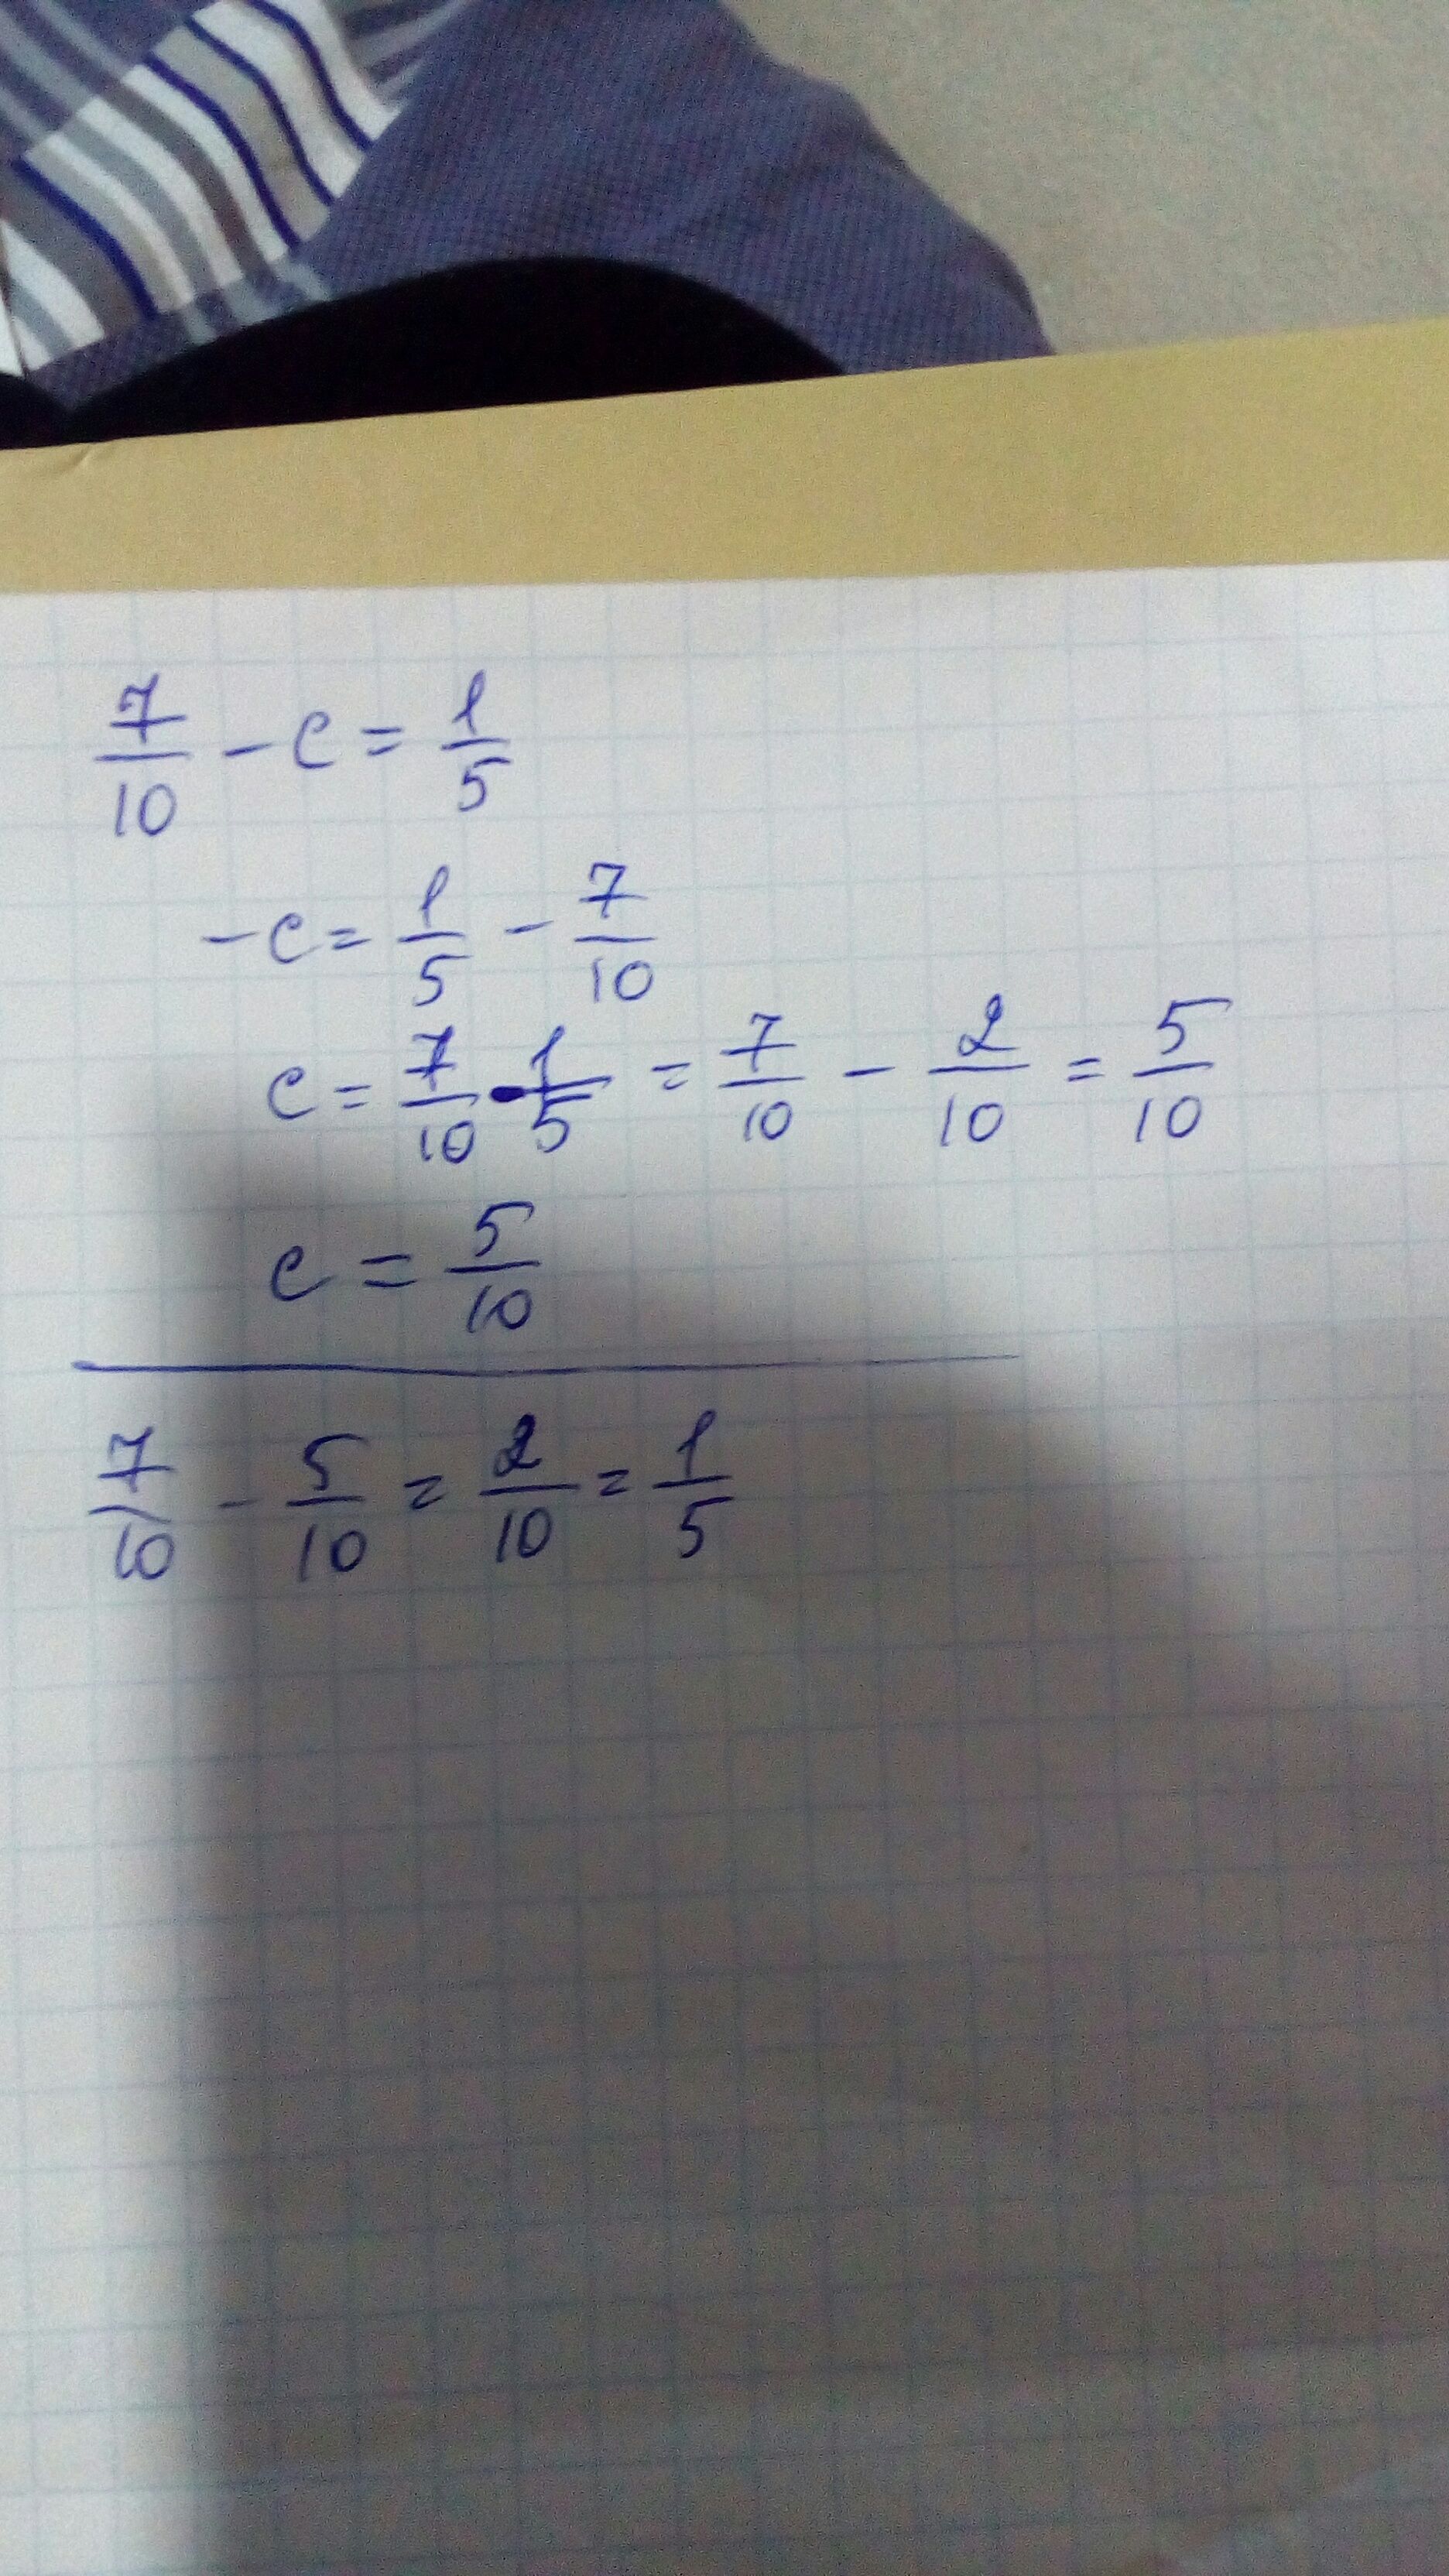 7/10 - c = 1/5
-c = 1/5 - 7/10
c = 7/10 - 1/5 = 7/10 - 2/10 = 5/10
c = 5/10
7/10 - 5/10 = 2/10 = 1/5